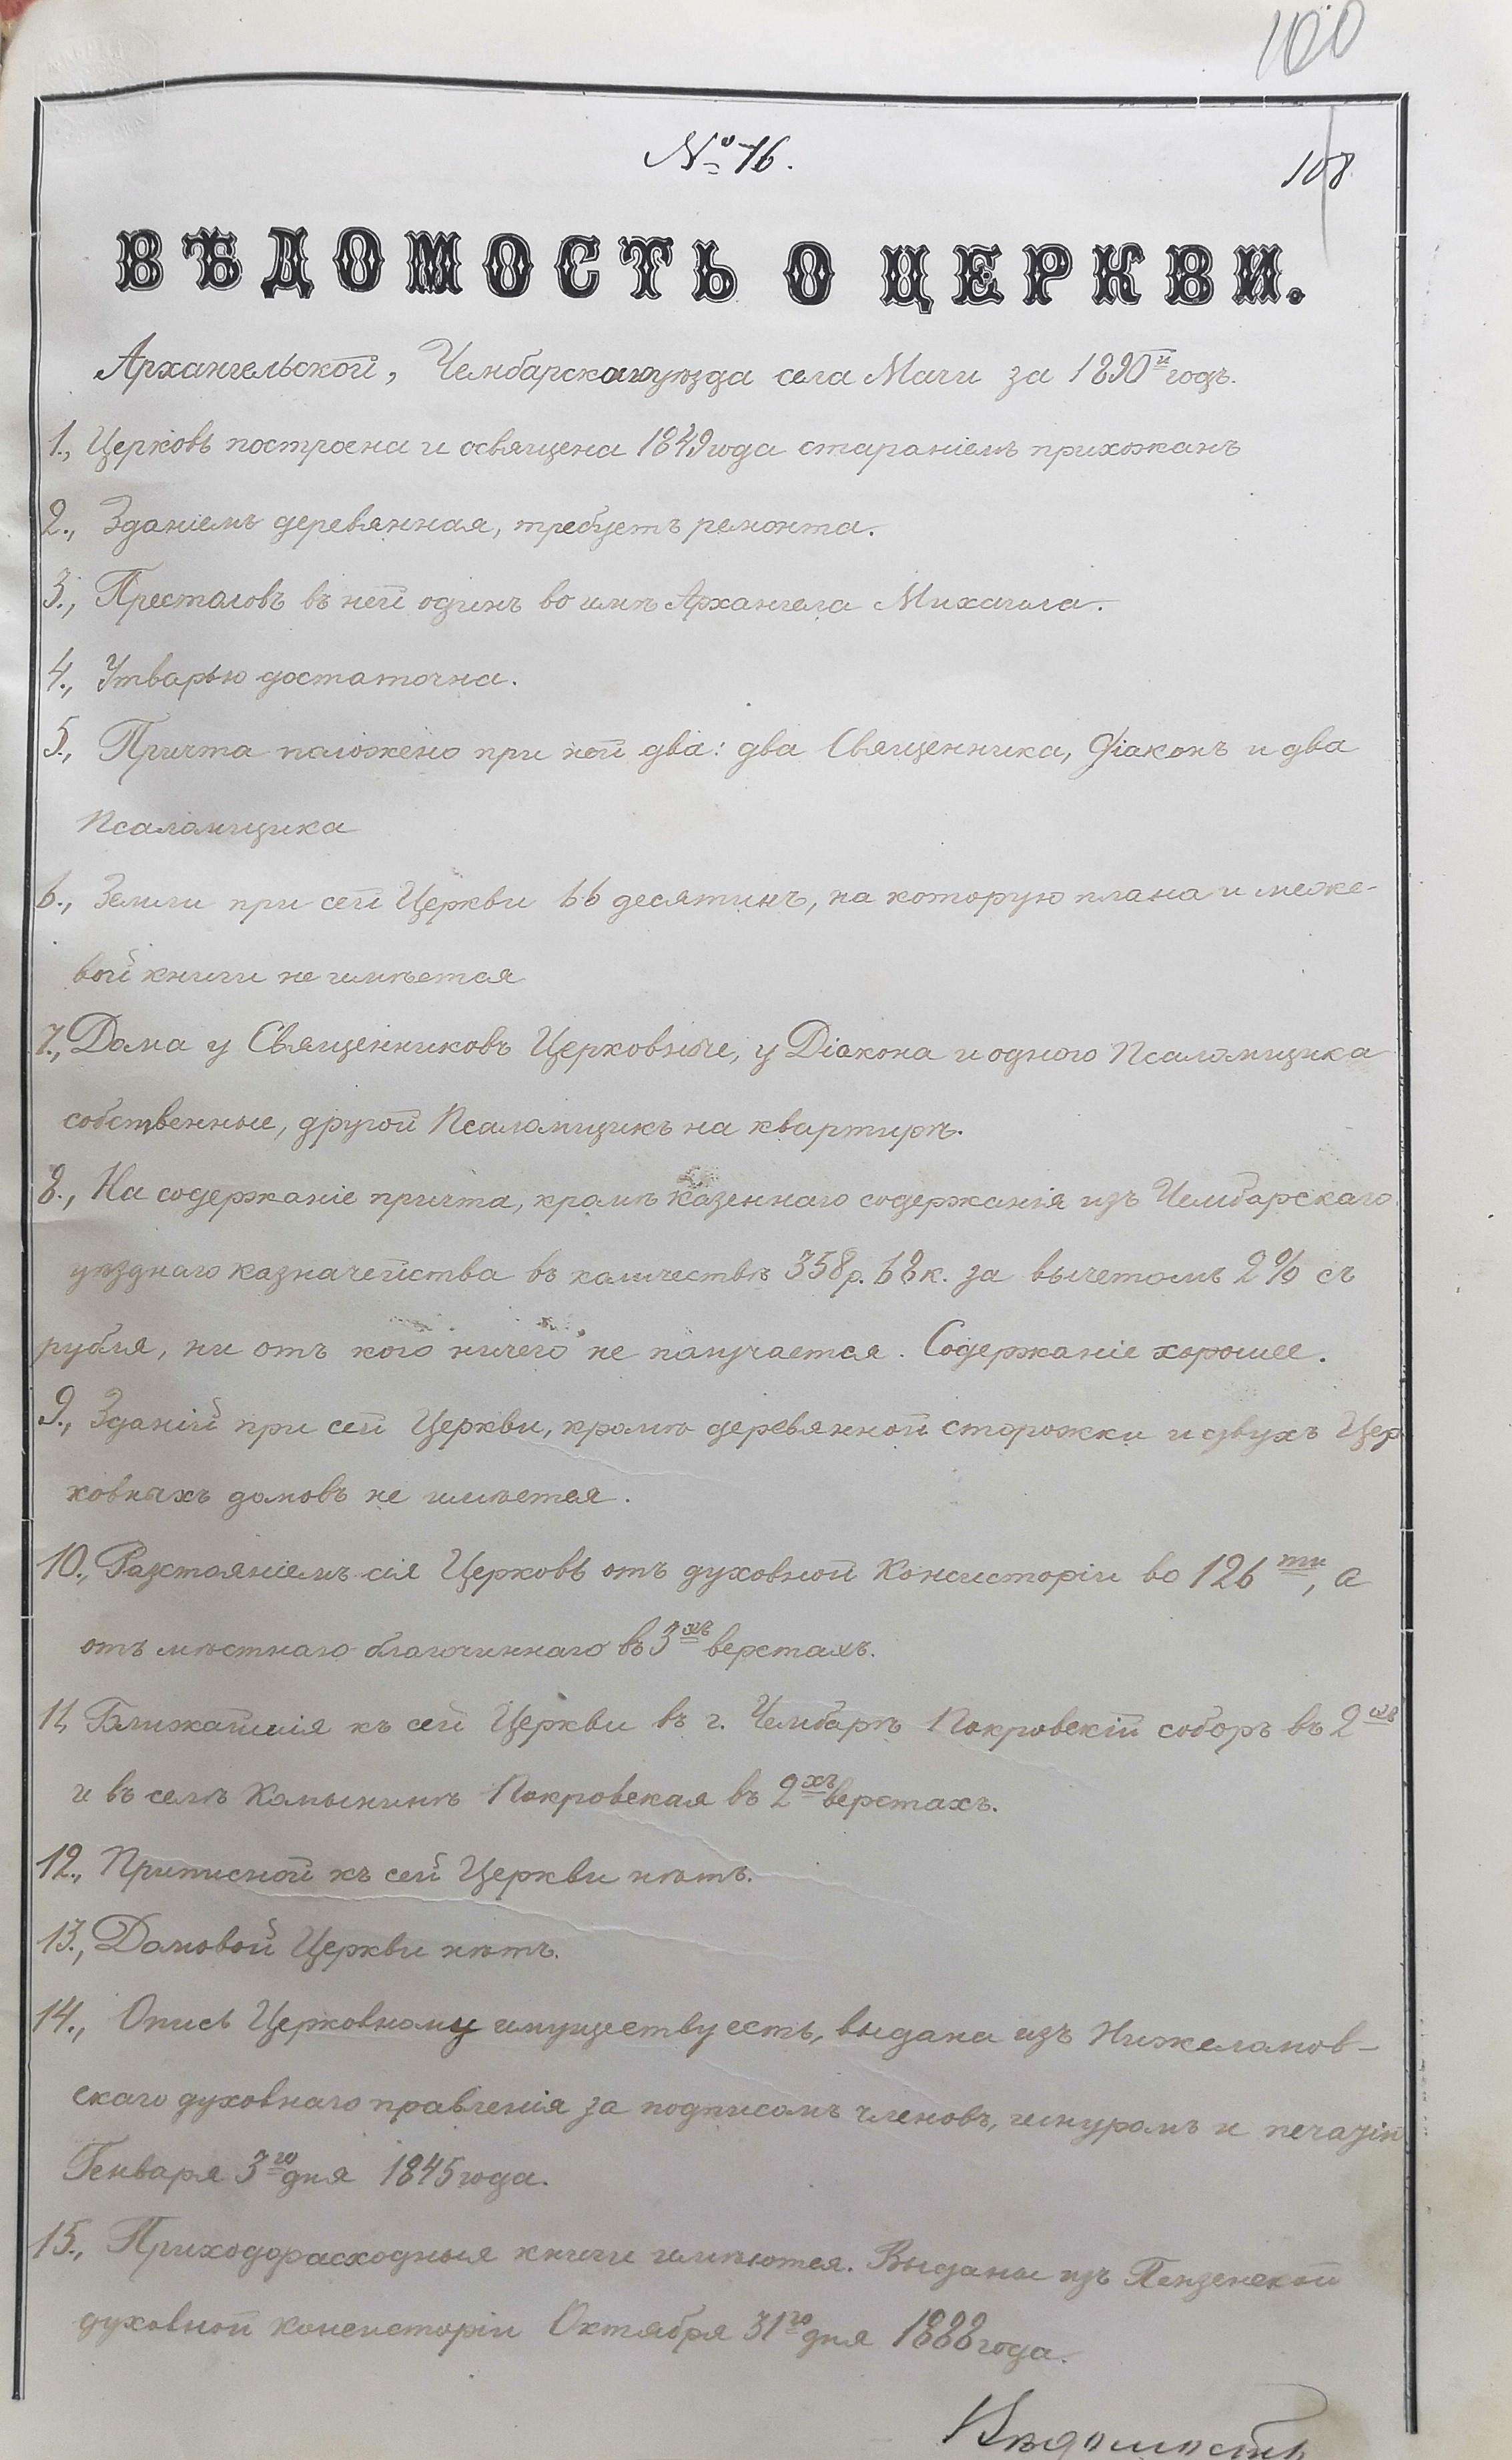 100
№ 16.
108
ВѢДОМОСТЬ О ЦЕРКВИ.
Архангельской, Чембарскаго уѣзда села Мачи за 1890й годъ.
1., Церковь построена и освящена 1849 года стараніемъ прихожанъ
2., Зданіемъ деревянная, требуетъ ремонта.
3., Престоловъ въ ней одинъ во имя Архангела Михаила.
4., Утварью достаточна.
5., Причта положено при ней два: два Священника, Діаконъ и два
Псаломщика
6., Земли при сей Церкви 66 десятинъ, на которую плана и меже-
вой книги не имѣется
7., Дома у Священниковъ Церковные, у Діакона и одного Псаломщика
собственные, другой Псаломщикъ на квартирѣ.
8., На содержаніе причта, кромѣ казеннаго содержанія изъ Чембарскаго
уѣзднаго казначейства въ количествѣ 358 р. 68 к. за вычетомъ 2% съ
рубля, ни отъ кого ничего не получается. Содержаніе хорошее.
9., Зданій при сей Церкви, кромѣ деревянной сторожки и двухъ Цер
ковныхъ домовъ не имѣется.
10., Разстояніемъ сія Церковь отъ духовной Консисторіи во 126ти, а
отъ мѣстнаго благочиннаго въ 3хъ верстахъ.
11, Ближайшія къ сей Церкви въ г. Чембарѣ Покровскій соборъ въ 2хъ
и въ селѣ Камынинѣ Покровская въ 2хъ верстахъ.
12., Приписной къ сей Церкви нѣтъ.
13., Домовой Церкви нѣтъ.
14., Опись Церковному имуществу есть, выдана изъ Нижеломов-
скаго духовнаго правленія за подписомъ членовъ, шнуромъ и печатію
Генваря 3го дня 1845 года.
15., Приходорасходныя книги имѣются. Выданы изъ Пензенской
духовной консисторіи Октября 31го дня 1888 года.
Вѣдомость